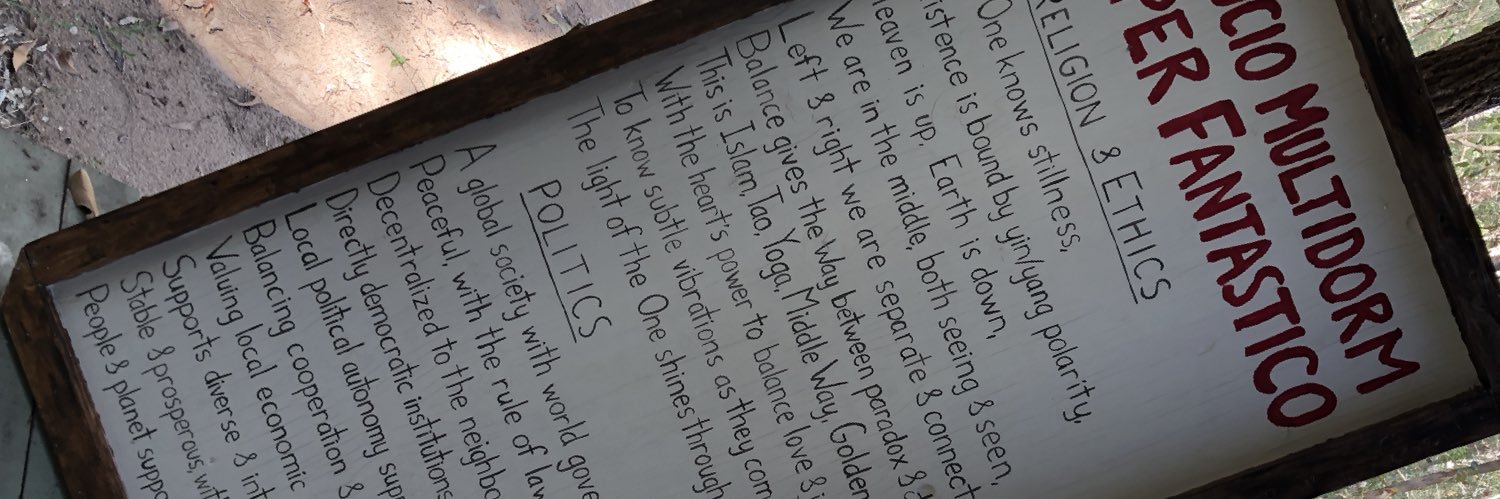 OCIO MULTIDORM
PER FANTASTICO
RELIGION & ETHICS
One knows stillness,
istence is bound by yin/yang polarity,
eaven is up, Earth is down,
We are in the middle, both seeing & seen,
Left & right we are separate & connect
Balance gives the Way between paradox &
This is Islam, Tao, Yoga, Middle Way, Golden
With the heart's power to balance love &
To know subtle vibrations as they com
The light of the One shines through
POLITICS
A global society with world gove
Peaceful, with the rule of law
Decentralized to the neighbo
Directly democratic institutions
Local political autonomy supp
Balancing cooperation &
Valuing local economic
Supports diverse & int
Stable & prosperous, with
People & planet suppo